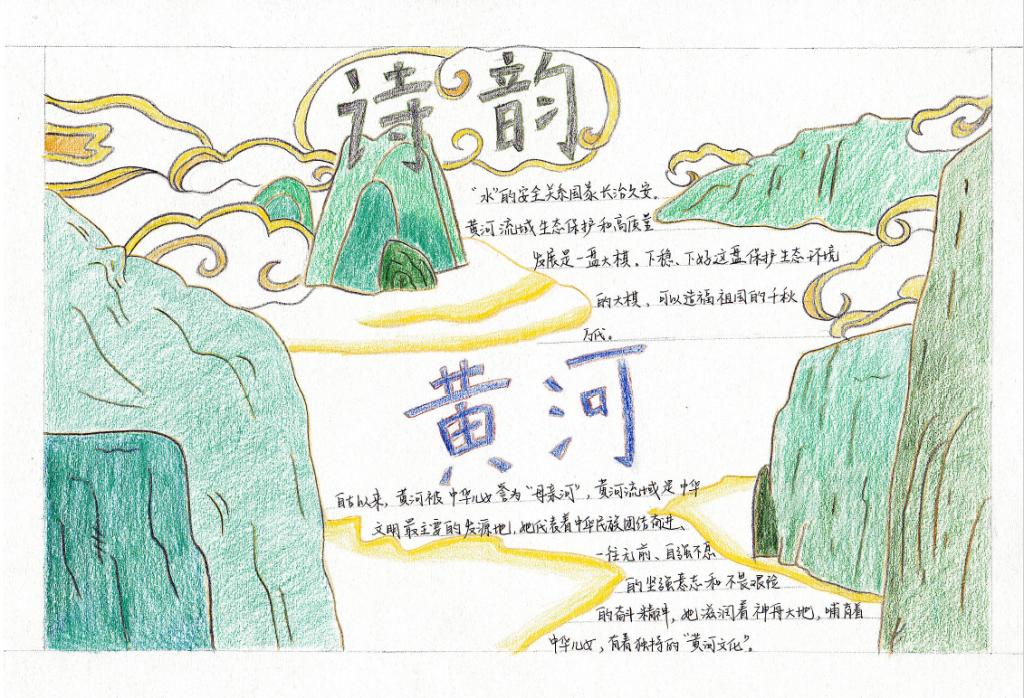 诗韵
“水”的安全关系国家长治久安。
黄河流域生态保护和高质量
发展是一盘大棋。下稳、下好这盘保护生态环境
的大棋，可以造福祖国的千秋
万代。
黄河
自古以来，黄河被中华儿女誉为“母亲河”，黄河流域是中华
文明最主要的发源地，她代表着中华民族团结奋进、
一往无前、自强不息
的坚强意志和不畏艰险
的奋斗精神，她滋润着神舟大地，哺育着
中华儿女，有着独特的“黄河文化”。